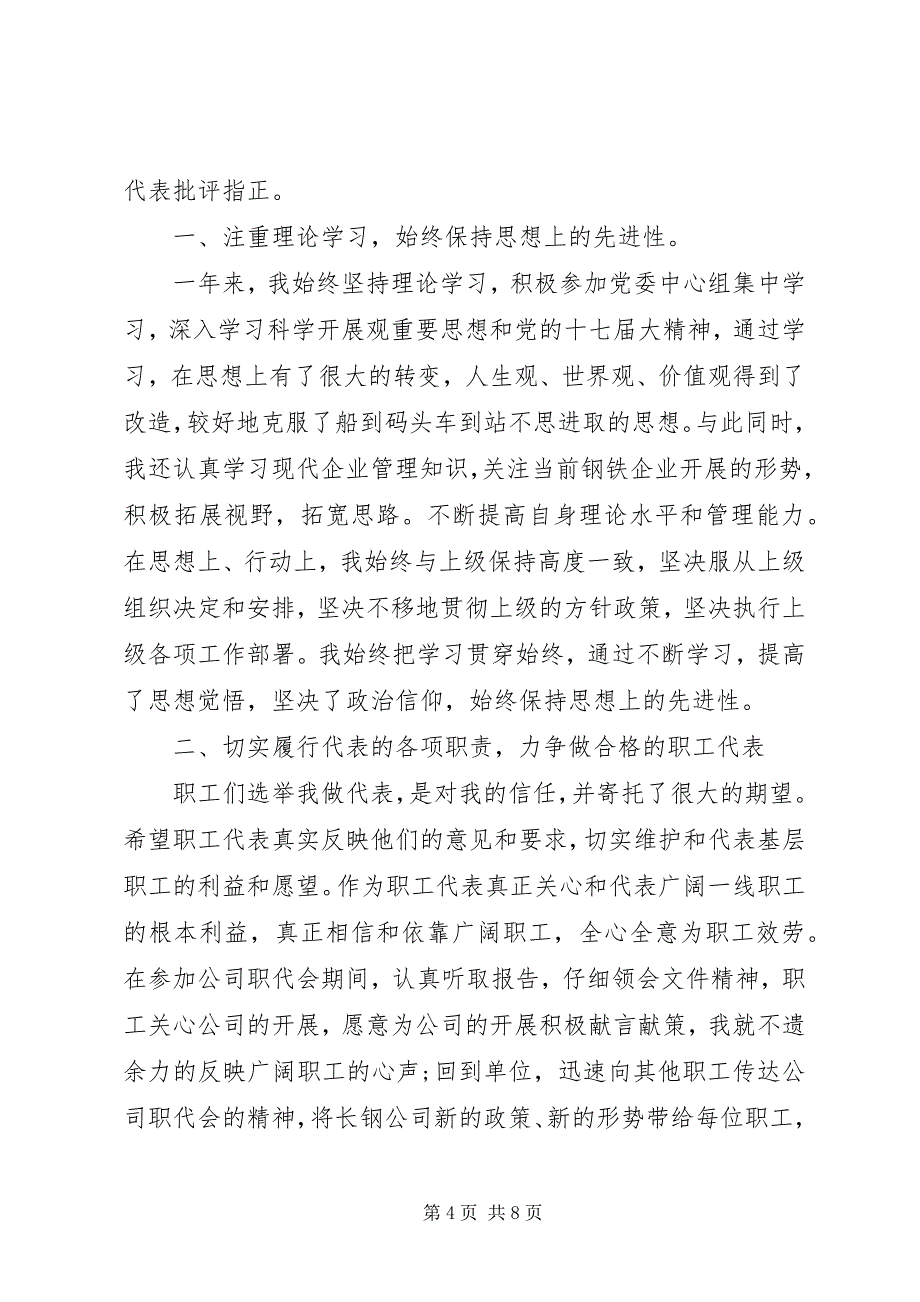 代表批评指正。
一、注重理论学习，始终保持思想上的先进性。
一年来，我始终坚持理论学习，积极参加党委中心组集中学
习，深入学习科学开展观重要思想和党的十七届大精神，通过学
习，在思想上有了很大的转变，人生观、世界观、价值观得到了
改造，较好地克服了船到码头车到站不思进取的思想。与此同时，
我还认真学习现代企业管理知识，关注当前钢铁企业开展的形势，
积极拓展视野，拓宽思路。不断提高自身理论水平和管理能力。
在思想上、行动上，我始终与上级保持高度一致，坚决服从上级
组织决定和安排，坚决不移地贯彻上级的方针政策，坚决执行上
级各项工作部署。我始终把学习贯穿始终，通过不断学习，提高
了思想觉悟，坚决了政治信仰，始终保持思想上的先进性。
二、切实履行代表的各项职责，力争做合格的职工代表
职工们选举我做代表，是对我的信任，并寄托了很大的期望。
希望职工代表真实反映他们的意见和要求，切实维护和代表基层
职工的利益和愿望。作为职工代表真正关心和代表广阔一线职工
的根本利益，真正相信和依靠广阔职工，全心全意为职工效劳。
在参加公司职代会期间，认真听取报告，仔细领会文件精神，职
工关心公司的开展，愿意为公司的开展积极献言献策，我就不遗
余力的反映广阔职工的心声;回到单位，迅速向其他职工传达公
司职代会的精神，将长钢公司新的政策、新的形势带给每位职工，
第 4 页 共 8 页